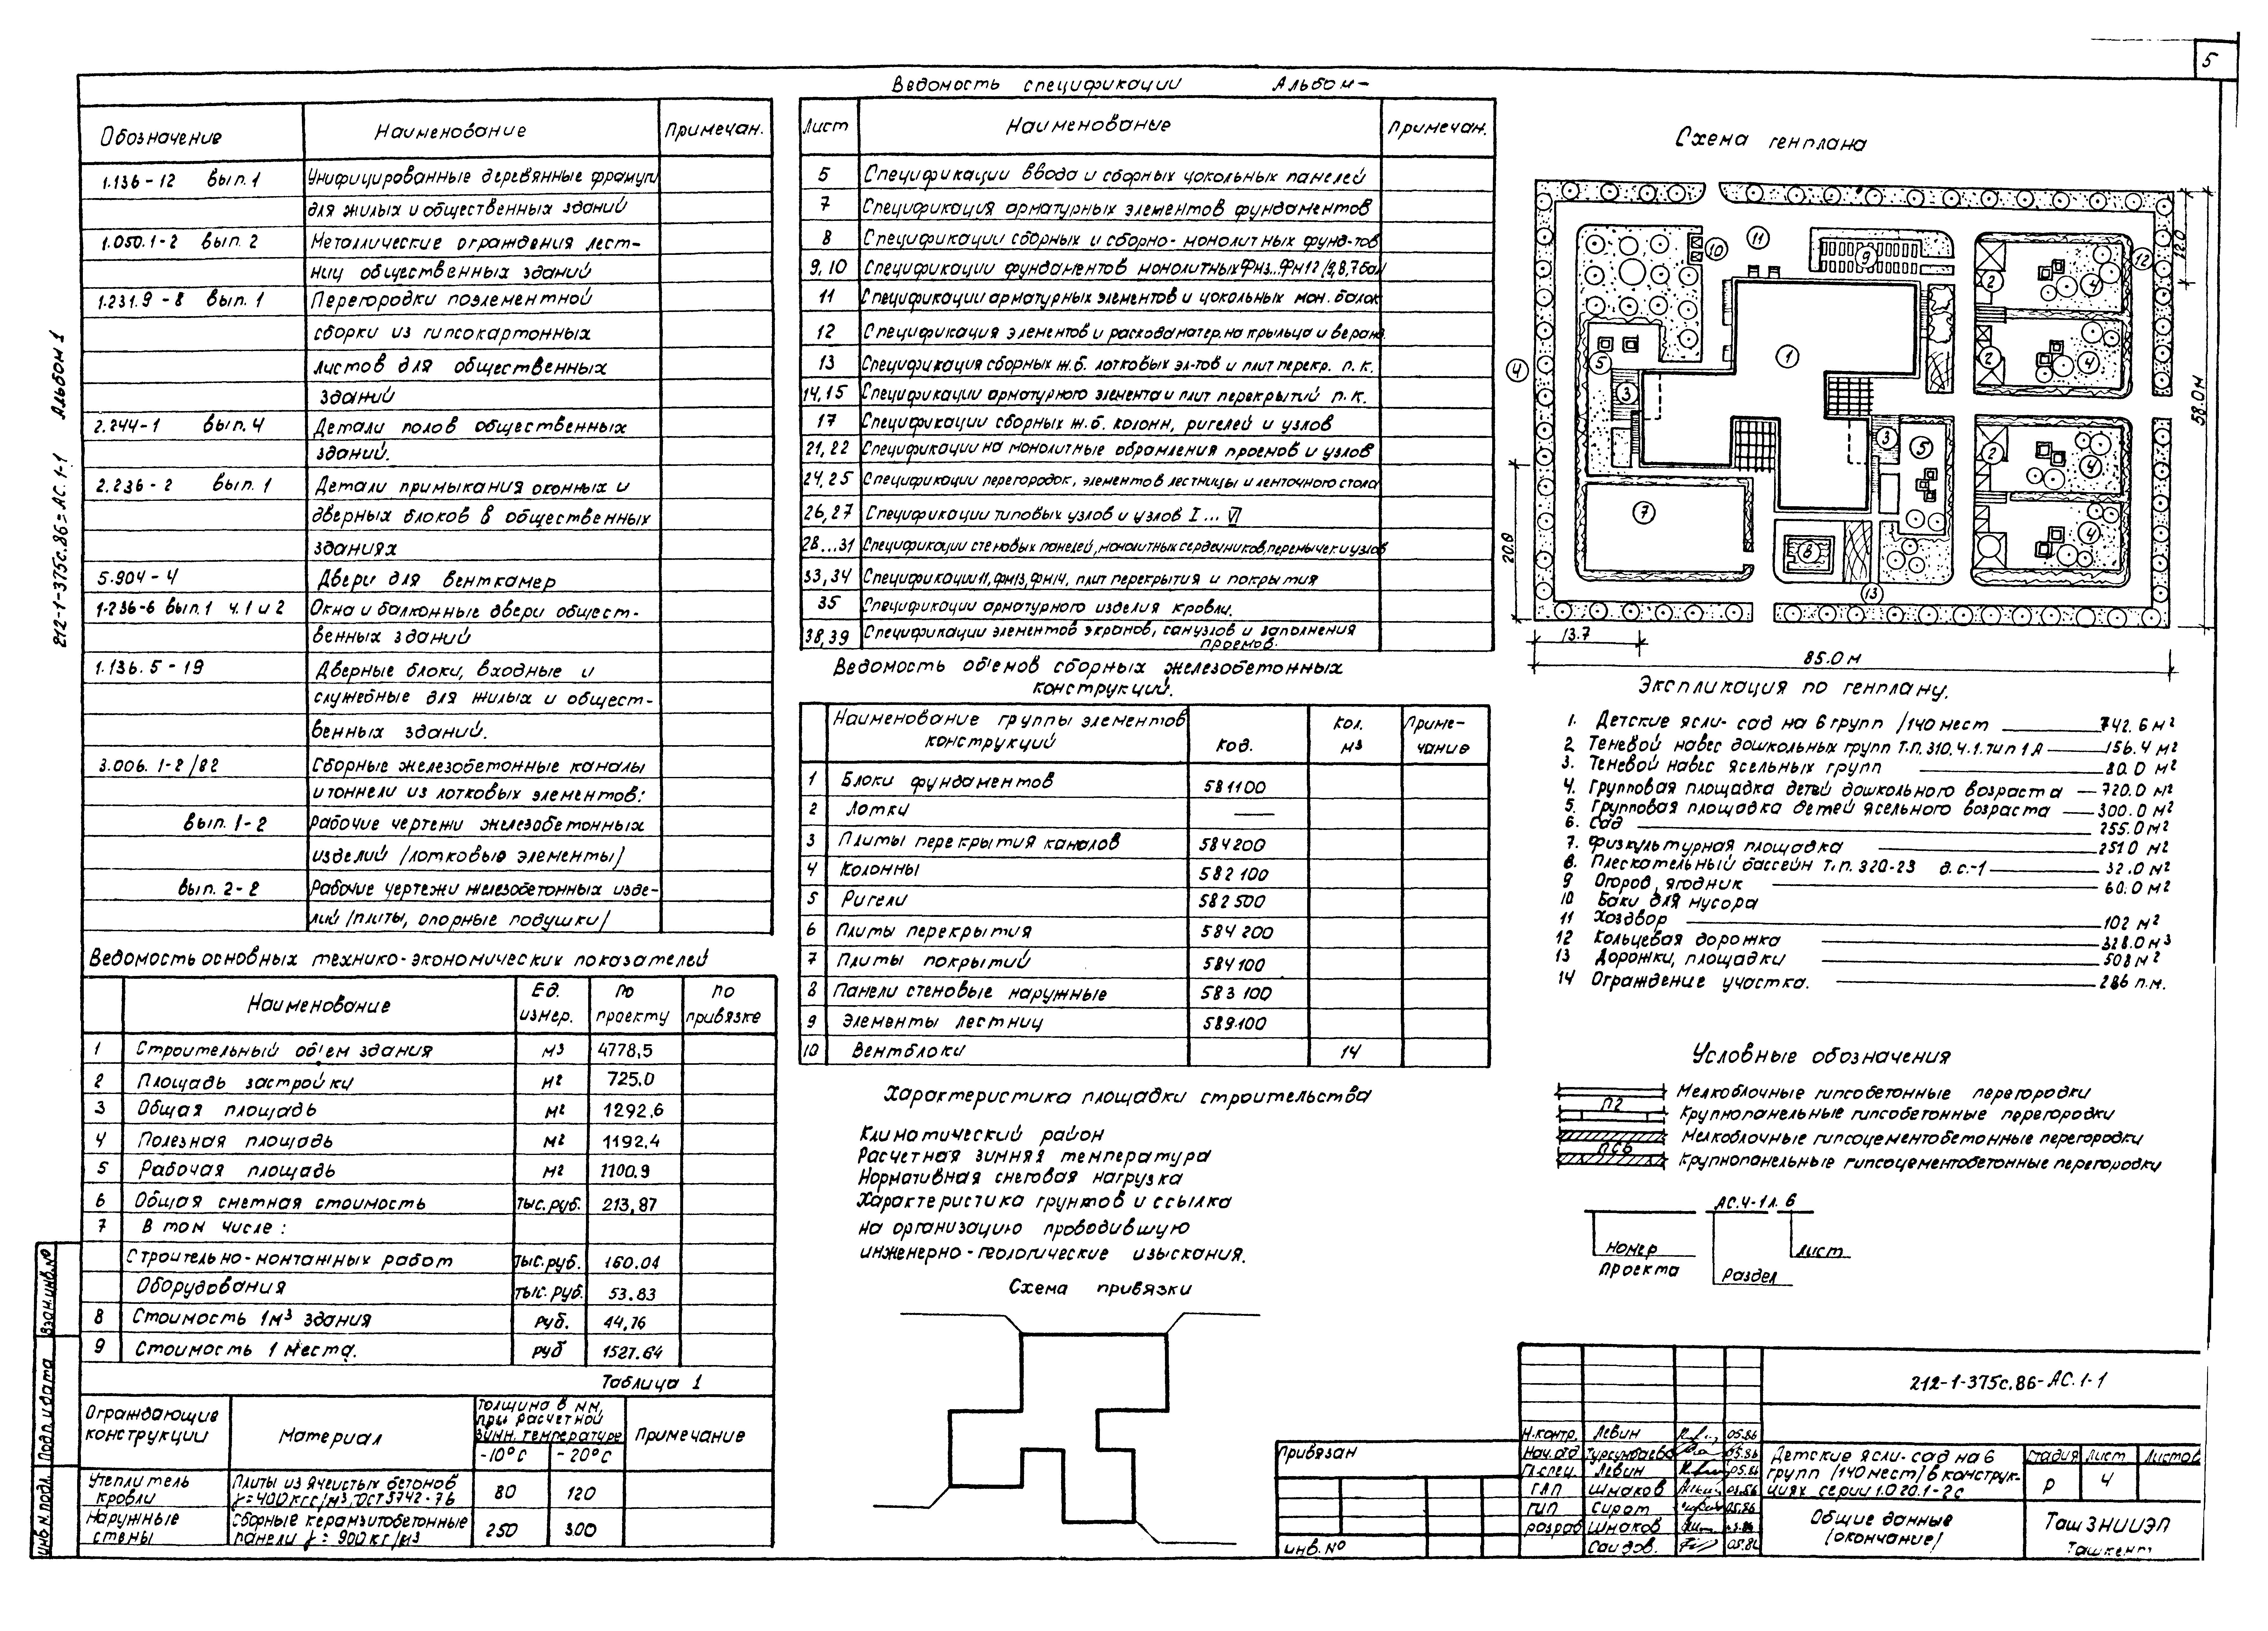 5
212-1-375с.86-АС.1-1 Альбом 1
Обозначение Наименование Примечан.
1.136-12 вып.1 Унифицированные деревянные фрамуги
для жилых и общественных зданий
1.050.1-2 вып.2 Металлические ограждения лест-
ниц общественных зданий
1.231.9-8 вып.1 Перегородки поэлементной
сборки из гипсокартонных
листов для общественных
зданий
2.244-1 вып.4 Детали полов общественных
зданий.
2.236-2 вып.1 Детали примыкания оконных и
дверных блоков в общественных
зданиях
5.904-4 Двери для венткамер
1.236-6 вып.1 ч.1 и 2 Окна и балконные двери общест-
венных зданий
1.136.5-19 Дверные блоки, входные и
служебные для жилых и общест-
венных зданий.
3.006.1-2/82 Сборные железобетонные каналы
и тоннели из лотковых элементов:
вып.1-2 Рабочие чертежи железобетонных
изделий /лотковые элементы/
вып.2-2 Рабочие чертежи железобетонных изде-
лий /плиты, опорные подушки/
Ведомость основных технико-экономических показателей
Наименование Ед. измер. По проекту по привязке
1 Строительный объем здания м3 4778,5
2 Площадь застройки м2 725.0
3 Общая площадь м2 1292.6
4 Полезная площадь м2 1192.4
5 Рабочая площадь м2 1100.9
6 Общая сметная стоимость тыс.руб. 213,87
7 В том числе:
Строительно-монтажных работ тыс.руб. 160.04
Оборудования тыс.руб. 53.83
8 Стоимость 1м3 здания руб. 44,76
9 Стоимость 1 места. руб 1527.64
Таблица 1
Ограждающие конструкции Материал Толщина в мм, при расчетной зимн. температуре Примечание
-10°С -20°С
Утеплитель кровли Плиты из ячеистых бетонов γ=400кгс/м3, ОСТ 5742-76 80 120
Наружные стены Сборные керамзитобетонные панели γ=900кг/м3 250 300
Ведомость спецификации Альбом-
Лист Наименование Примечан.
5 Спецификации ввода и сборных цокольных панелей
7 Спецификация арматурных элементов фундаментов
8 Спецификации сборных и сборно-монолитных фунд-тов
9,10 Спецификации фундаментов монолитных Фм3..Фм12 /9,8,7 бал
11 Спецификации арматурных элементов и цокольных мон. балок
12 Спецификация элементов и расхова матер. на крыльца и веранд
13 Спецификация сборных ж.б. лотковых эл-тов и плит перекр. п.к.
14,15 Спецификации арматурного элемента и плит перекрытий п.к.
17 Спецификации сборных ж.б. колонн, ригелей и узлов
21,22 Спецификации на монолитные обрамления проемов и узлов
24,25 Спецификации перегородок, элементов лестницы и ленточного стола
26,27 Спецификации типовых узлов и узлов I ... VI
28...31 Спецификации стеновых панелей, монолитных сердечников, перемычек и узлов
33,34 Спецификации 11, фм13, фм14, плит перекрытия и покрытия
35 Спецификации арматурного изделия кровли.
38,39 Спецификации элементов экранов, санузлов и заполнения
проемов.
Ведомость объемов сборных железобетонных
конструкций.
Наименование группы элементов конструкций Код. Кол. м3 Приме-чание
1 Блоки фундаментов 581100
2 Лотки —
3 Плиты перекрытия каналов 584200
4 Колонны 582100
5 Ригели 582500
6 Плиты перекрытия 584200
7 Плиты покрытий 584100
8 Панели стеновые наружные 583100
9 Элементы лестниц 589.100
10 Вентблоки 14
Характеристика площадки строительства
Климатический район
Расчетная зимняя температура
Нормативная снеговая нагрузка
Характеристика грунтов и ссылка
на организацию проводившую
инженерно-геологические изыскания.
Схема привязки
Схема генплана
1 2 2 2 3 3 4 4 4 4 4 5 5 7 8 9 10 11 12 13
12.0
58.0м
20.0
13.7
85.0 м
Экспликация по генплану.
1. Детские ясли-сад на 6 групп /140 мест 742.6 м2
2 Теневой навес дошкольных групп т.п.310.4.1.тип 1А 156.4 м2
3. Теневой навес ясельных групп 80.0 м2
4. Групповая площадка детей дошкольного возраста 720.0 м2
5. Групповая площадка детей ясельного возраста 300.0 м2
6. Сад 255.0м2
7. Физкультурная площадка 251.0 м2
8. Плескательный бассейн т.п.320-23 д.с.-1 32.0 м2
9 Огород, ягодник 60.0 м2
10 Баки для мусора
11 Хоздвор 102 м2
12 Кольцевая дорожка 328.0м3
13 Дорожки, площадки 508м2
14 Ограждение участка. 286 п.м.
Условные обозначения
Мелкоблочные гипсобетонные перегородки
П2 Крупнопанельные гипсобетонные перегородки
Мелкоблочные гипсоцементобетонные перегородки
ПС6 Крупнопанельные гипсоцементобетонные перегородки
АС.4-1л.6
номер проекта
Раздел
лист
212-1-375с.86-АС.1-1
Н.контр. Левин 05.86
Нач.отд Турсунбаева 05.86
Гл.спец. Левин 05.86
ГАП Шмаков 03.86
ГИП Сирот 05.86
разраб Шмаков
Саидов.
Детские ясли-сад на 6
групп /140 мест/ в конструк-
циях серии 1.020.1-2с
Стадия Лист Листов
Р 4
Общие данные
/окончание/
ТашЗНИИЭП
Ташкент
Привязан
инв.№
Взам.инв.№
Подп. и дата
инв.№подл.